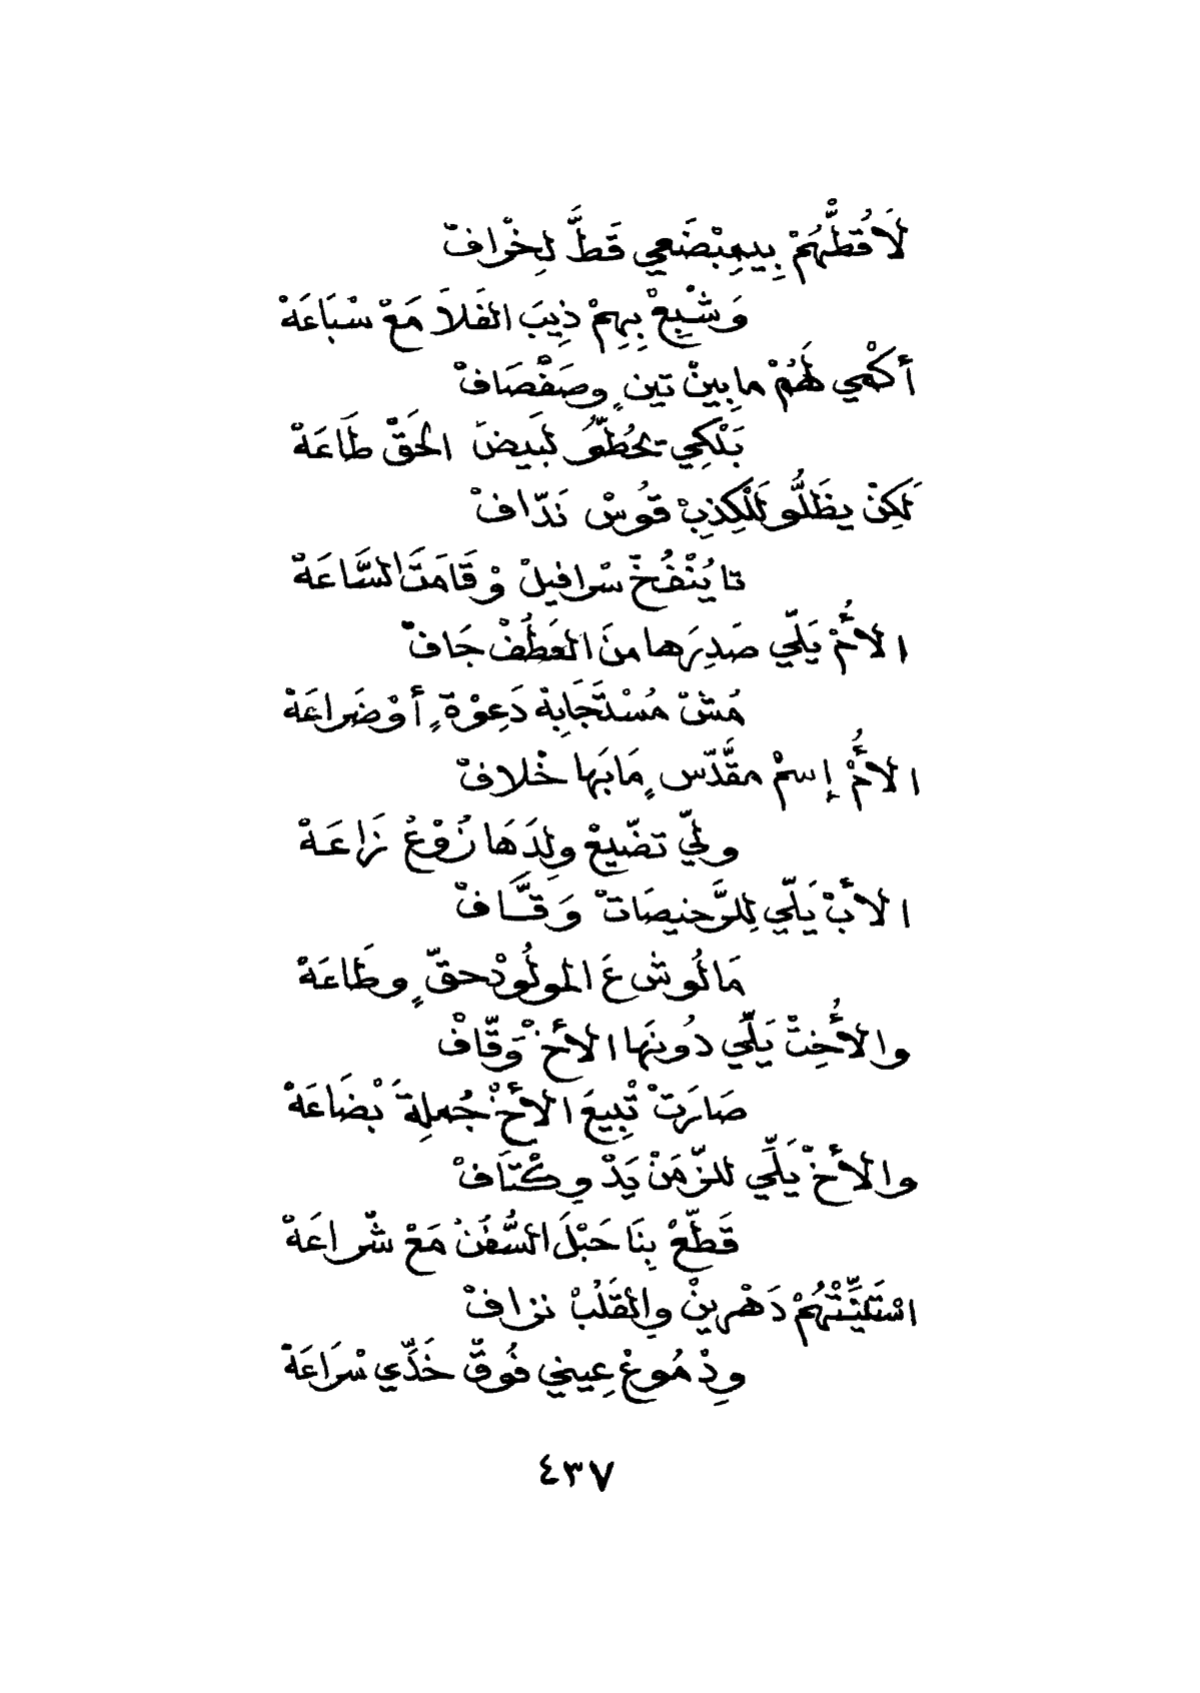 لَاقُطّْهُمْ بِيمِبْضَعي قَطَّ لِخِرْافْ
وَشْبِعْ بِهِمْ ذِيبَ الفَلاَ مَعْ سْبَاعَهْ
أكْمِي لَهُمْ مابِينْ تين ٍ وصَفْصَافْ
بَلْكِي تحُطُّو لَبَيضَ الحَقّْ طَاعَهْ
لَكِنْ يظَلُّو لَلْكِذِبْ قوُسْ نَدّافْ
تا يُنْفُخْ سْرافيلْ وْقَامَتَ السَّاعَهْ
الأُمّْ يَلّي صَدِرَها منَ العَطُفْ جَافّْ
مُشْ مُسْتَجَابِهْ دَعِوْة ٍ أوْضَراعَهْ
الأُمّْ إسمْ مقَّدّس ٍ مَابَها خْلافْ
ولِّي تضّيعْ ولِدَهَا زُوْغْ نَزاعَهْ
الأبْ يَلّي لِلرَّخيصَاتْ وَقَّافْ
مَالُوش عَ المولُودْ حقّ ٍ وطَاعَهْ
والأُخِتْ يَلّي دُونَها الأخْ وَقّافْ
صَارَتْ تْبِيعَ الأخْ جُملِةَ بْضَاعَهْ
والأخْ يَلّي للزّمَنْ يَدْ وِكْتَافْ
قَطّعْ بِنَا حَبْلَ السُّفُنْ مَعْ شْراعَهْ
اسْتَنّيْتْهُمْ دَهْرينْ والقَلُبْ نزافْ
ودْمُوعْ عِيني فُوقْ خَدّي سْرَاعَهْ
٤٣٧